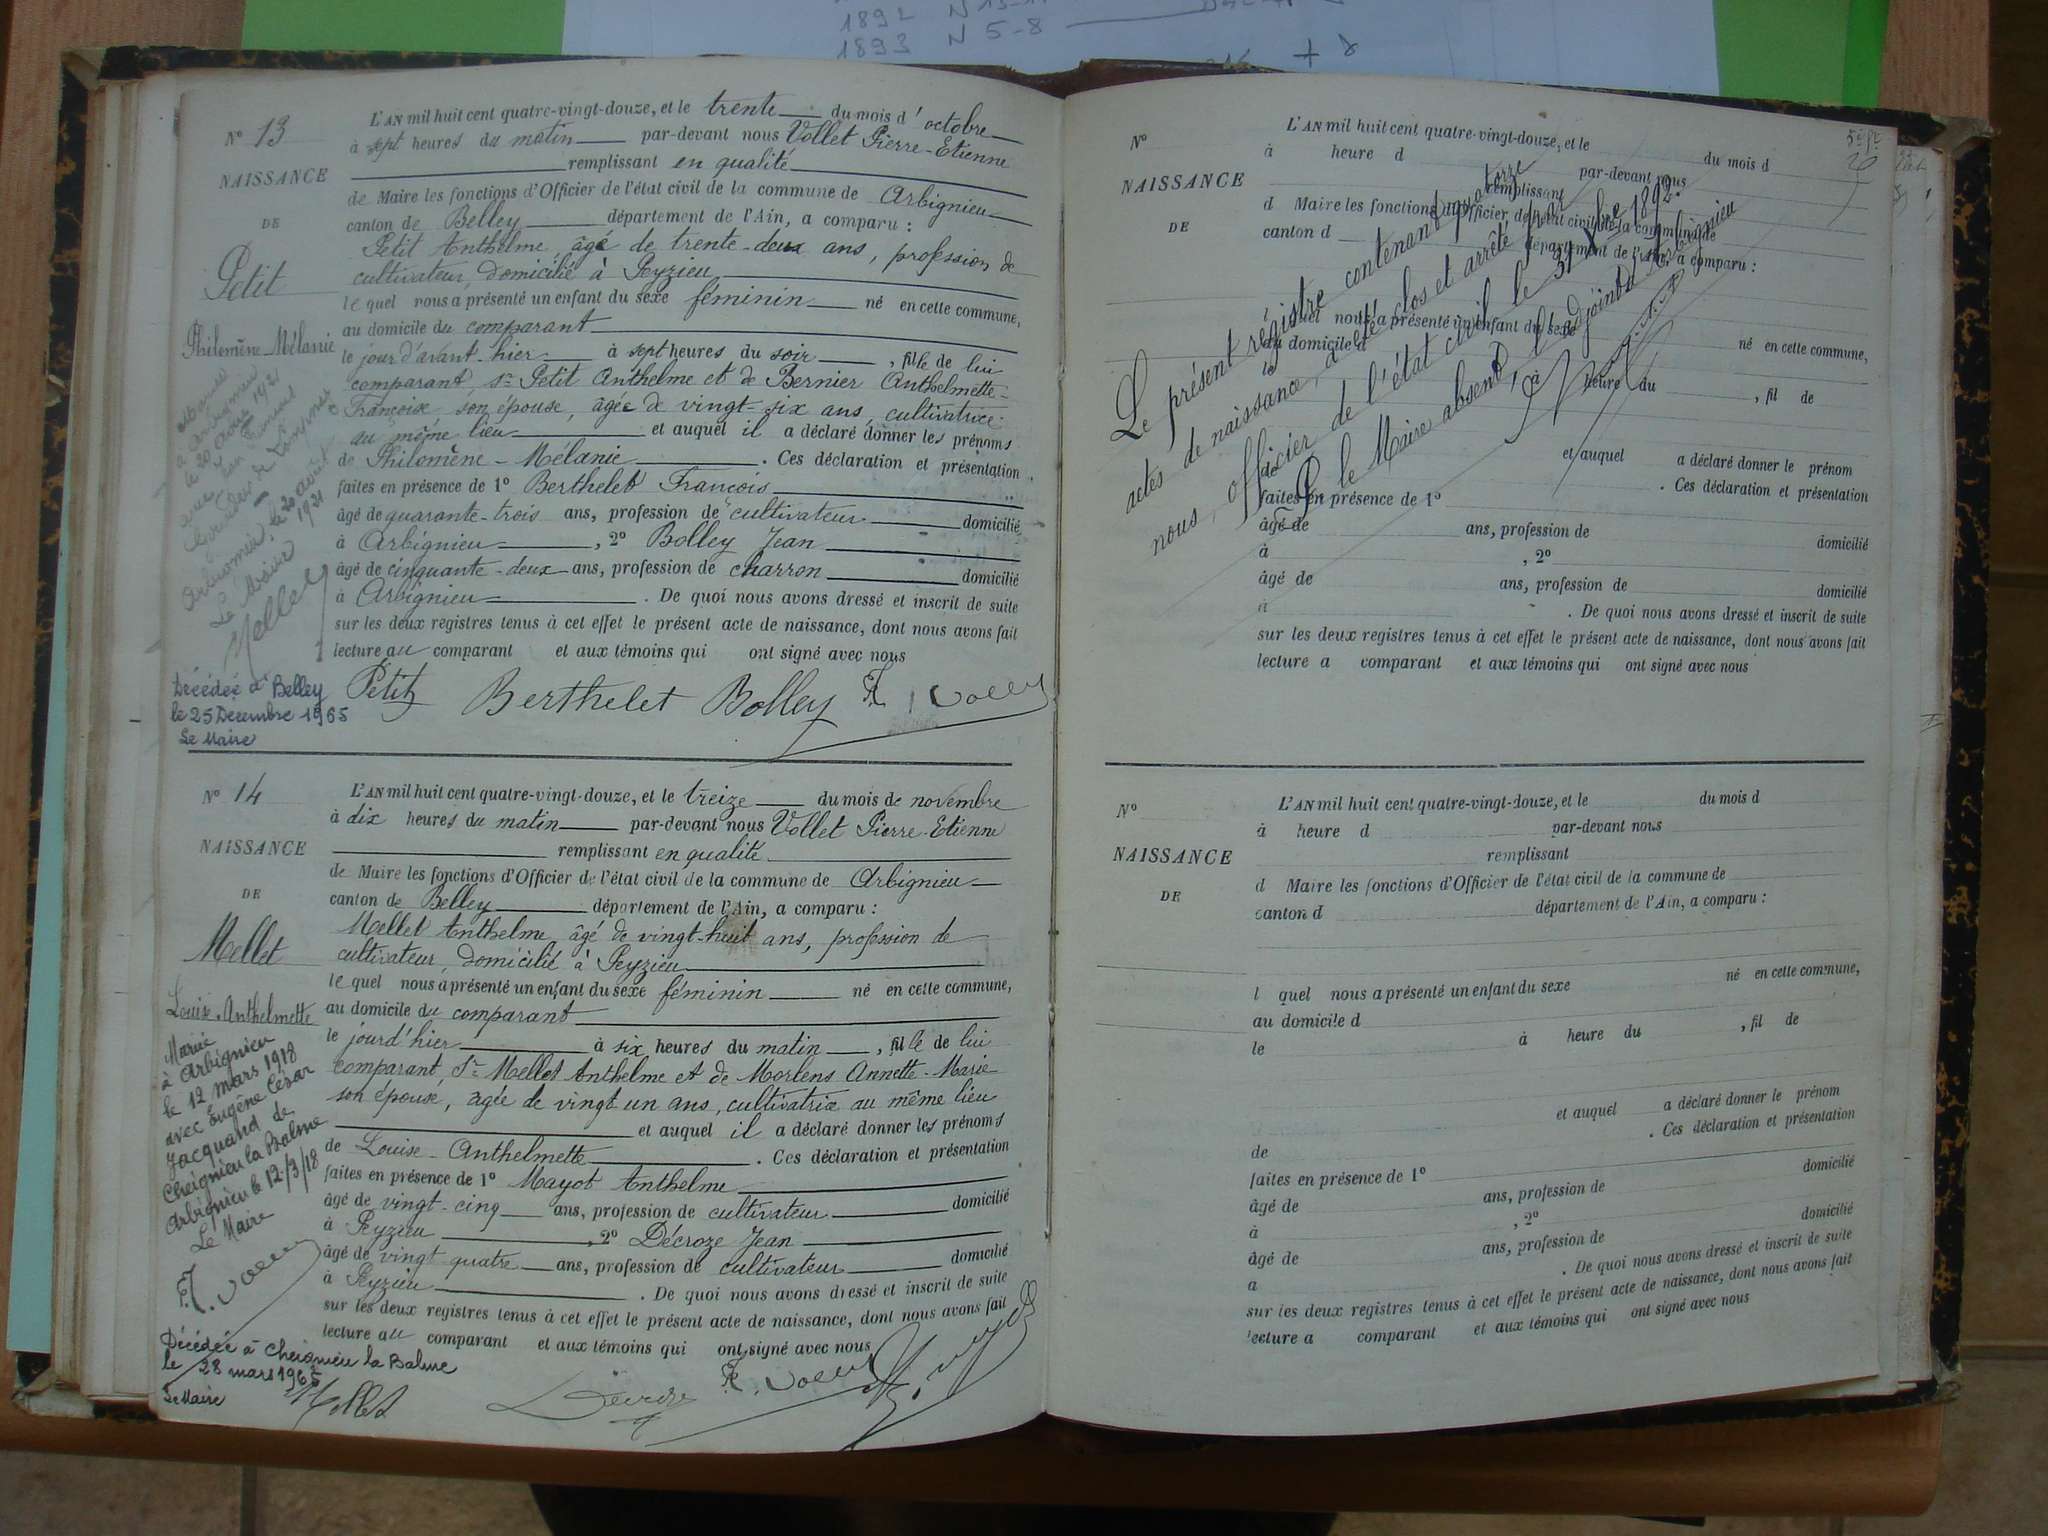 1892 N 13-1
1893 N 5-8
+ 8
N° 13
NAISSANCE
DE
Petit
Philomène Mélanie
Mariée
à Arbignieu
le 20 avril 1921
avec
Arbignieu, le 20 avril
1921
Le Maire
Mellet
Décédée à Belley
le 25 Decembre 1965
Le Maire
L'AN mil huit cent quatre-vingt-douze, et le trente du mois d'octobre
à sept heures du matin par-devant nous Vollet Pierre-Etienne
remplissant en qualité
de Maire les fonctions d'Officier de l'état civil de la commune de Arbignieu
canton de Belley département de l'Ain, a comparu :
Petit Anthelme, âgé de trente-deux ans, profession de
cultivateur, domicilié à Peyzieu
le quel nous a présenté un enfant du sexe féminin né en cette commune,
au domicile du comparant
le jour d'avant-hier à sept heures du soir , fille de lui
comparant, Sr Petit Anthelme et de Bernier Anthelmette-
Françoise son épouse, âgée de vingt-six ans, cultivatrice
au même lieu et auquel il a déclaré donner les prénoms
de Philomène-Mélanie . Ces déclaration et présentation
faites en présence de 1° Berthelet François
âgé de quarante-trois ans, profession de cultivateur domicilié
à Arbignieu , 2° Bolley Jean
âgé de cinquante-deux ans, profession de charron domicilié
à Arbignieu . De quoi nous avons dressé et inscrit de suite
sur les deux registres tenus à cet effet le présent acte de naissance, dont nous avons fait
lecture au comparant et aux témoins qui ont signé avec nous
Petit Berthelet Bolley
N° 14
NAISSANCE
DE
Mellet
Louise Anthelmette
Mariée
à Arbignieu
le 12 mars 1918
avec Eugène César
Jacquand de
Cheignieu la Balme
Arbignieu le 12/3/18
Le Maire
Décédée à Cheignieu la Balme
le 28 mars 1965
Le Maire
L'AN mil huit cent quatre-vingt-douze, et le treize du mois de novembre
à dix heures du matin par-devant nous Vollet Pierre-Etienne
remplissant en qualité
de Maire les fonctions d'Officier de l'état civil de la commune de Arbignieu
canton de Belley département de l'Ain, a comparu :
Mellet Anthelme, âgé de vingt-huit ans, profession de
cultivateur, domicilié à Peyzieu
le quel nous a présenté un enfant du sexe féminin né en cette commune,
au domicile du comparant
le jour d'hier à six heures du matin , fille de lui
comparant, Sr Mellet Anthelme et de Mortens Annette-Marie
son épouse, agée de vingt un ans, cultivatrix au même lieu
et auquel il a déclaré donner les prénoms
de Louise-Anthelmette . Ces déclaration et présentation
faites en présence de 1° Mayot Anthelme
âgé de vingt-cinq ans, profession de cultivateur domicilié
à Peyzieu , 2° Décroze Jean
âgé de vingt quatre ans, profession de cultivateur domicilié
à Peyzieu . De quoi nous avons dressé et inscrit de suite
sur les deux registres tenus à cet effet le présent acte de naissance, dont nous avons fait
lecture au comparant et aux témoins qui ont signé avec nous
Mellet
N°
NAISSANCE
DE
L'AN mil huit cent quatre-vingt-douze, et le du mois d
à heure d par-devant nous
remplissant
d Maire les fonctions d'Officier de l'état civil de la commune de
canton d département de l'Ain, a comparu :
l quel nous a présenté un enfant du sexe né en cette commune,
au domicile d
le à heure du , fil de
et auquel a déclaré donner le prénom
de . Ces déclaration et présentation
faites en présence de 1°
âgé de ans, profession de domicilié
à , 2°
âgé de ans, profession de domicilié
à . De quoi nous avons dressé et inscrit de suite
sur les deux registres tenus à cet effet le présent acte de naissance, dont nous avons fait
lecture a comparant et aux témoins qui ont signé avec nous
Le présent registre contenant quatorze
actes de naissance, a été clos et arrêté par
nous, officier de l'état civil le 31 Xbre 1892.
P. le Maire absent, l'adjoint d'Arbignieu
N°
NAISSANCE
DE
L'AN mil huit cent quatre-vingt-douze, et le du mois d
à heure d par-devant nous
remplissant
d Maire les fonctions d'Officier de l'état civil de la commune de
canton d département de l'Ain, a comparu :
l quel nous a présenté un enfant du sexe né en cette commune,
au domicile d
le à heure du , fil de
et auquel a déclaré donner le prénom
de . Ces déclaration et présentation
faites en présence de 1°
âgé de ans, profession de domicilié
à , 2°
âgé de ans, profession de domicilié
a . De quoi nous avons dressé et inscrit de suite
sur les deux registres tenus à cet effet le présent acte de naissance, dont nous avons fait
lecture a comparant et aux témoins qui ont signé avec nous